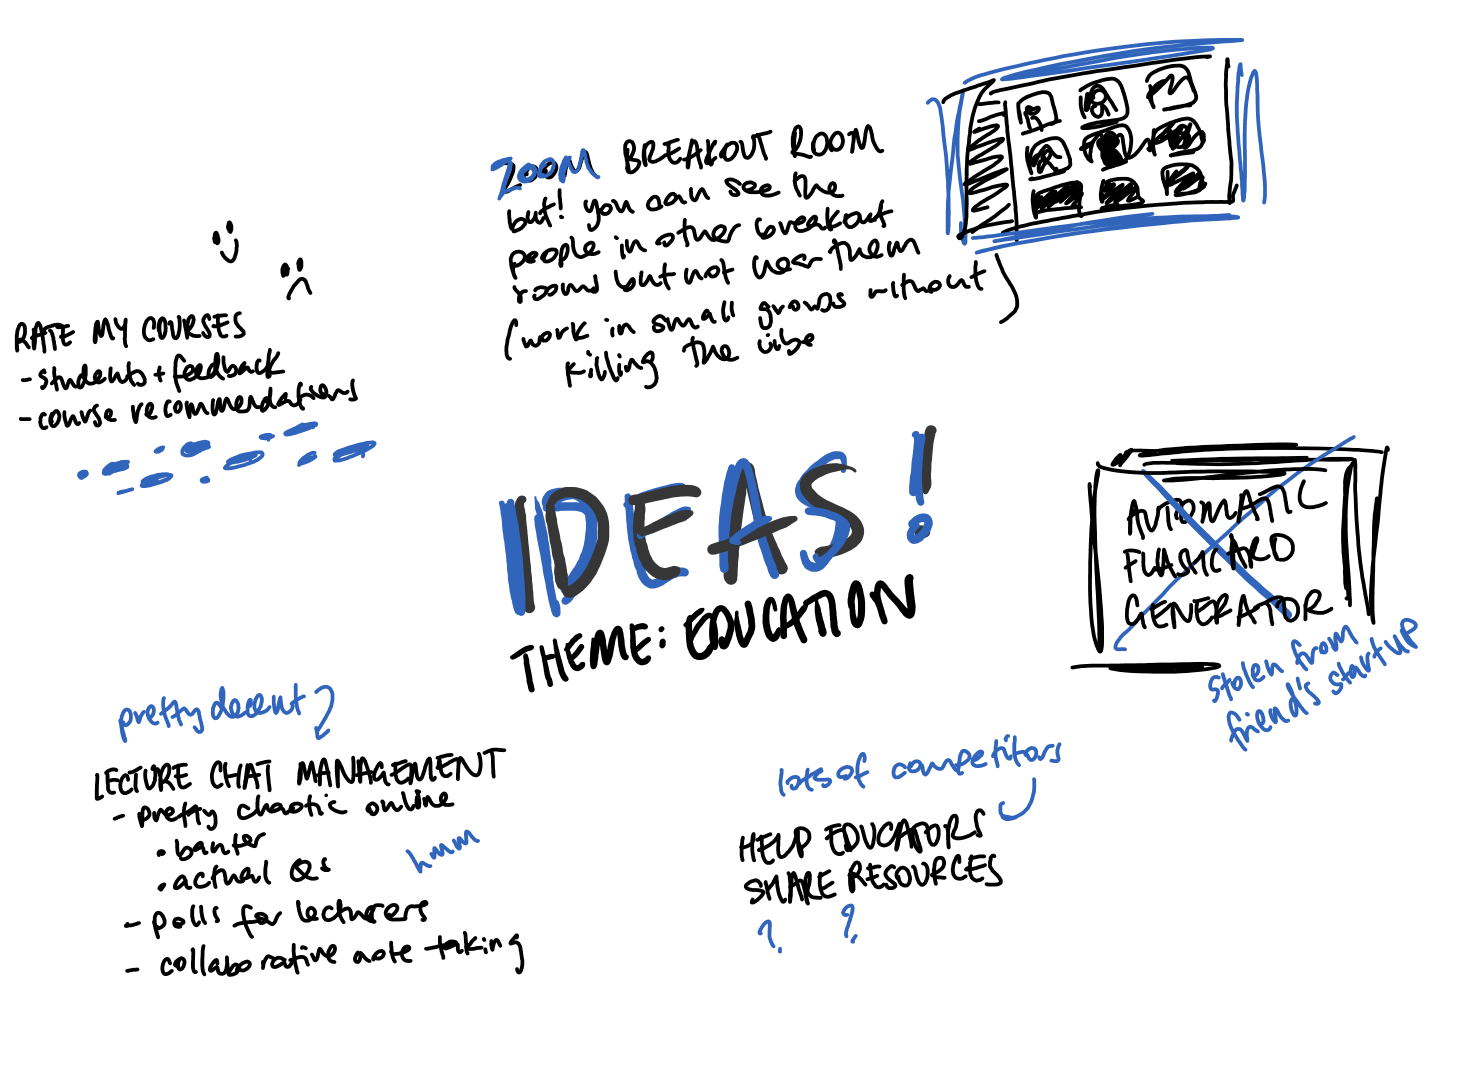 ZOOM BREAKOUT ROOM
but! you can see the
people in other breakout
rooms but not hear them
(work in small groups without)
killing the vibe
RATE MY COURSES
- students + feedback
- course recommendations
IDEAS!
THEME: EDUCATION
AUTOMATIC
FLASHCARD
GENERATOR
stolen from
friend's startup
pretty decent
LECTURE CHAT MANAGEMENT
- pretty chaotic online
• banter
• actual Qs
hmm
- polls for lecturers
- collaborative note taking
lots of competitors
HELP EDUCATORS
SHARE RESOURCES
? ?